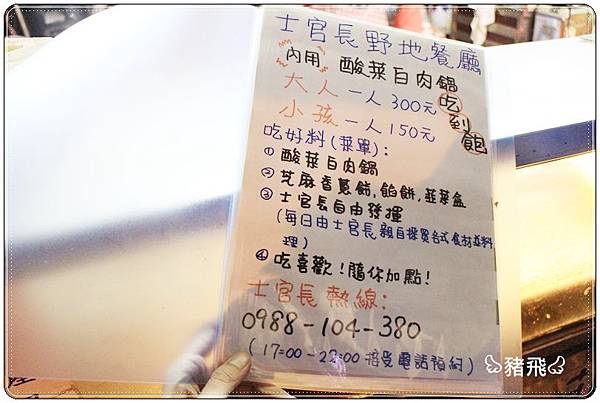 士官長野地餐廳
內用 酸菜白肉鍋
大人一人300元吃到飽
小孩一人150元
吃好料(菜單):
① 酸菜白肉鍋
② 芝麻香蔥餅,餡餅,韮菜盒
③ 士官長自由發揮
(每日由士官長親自採買各式食材並料
理)
④ 吃喜歡!隨你加點!
士官長熱線:
0988-104-380
(17:00-22:00接受電話預約)
豬飛